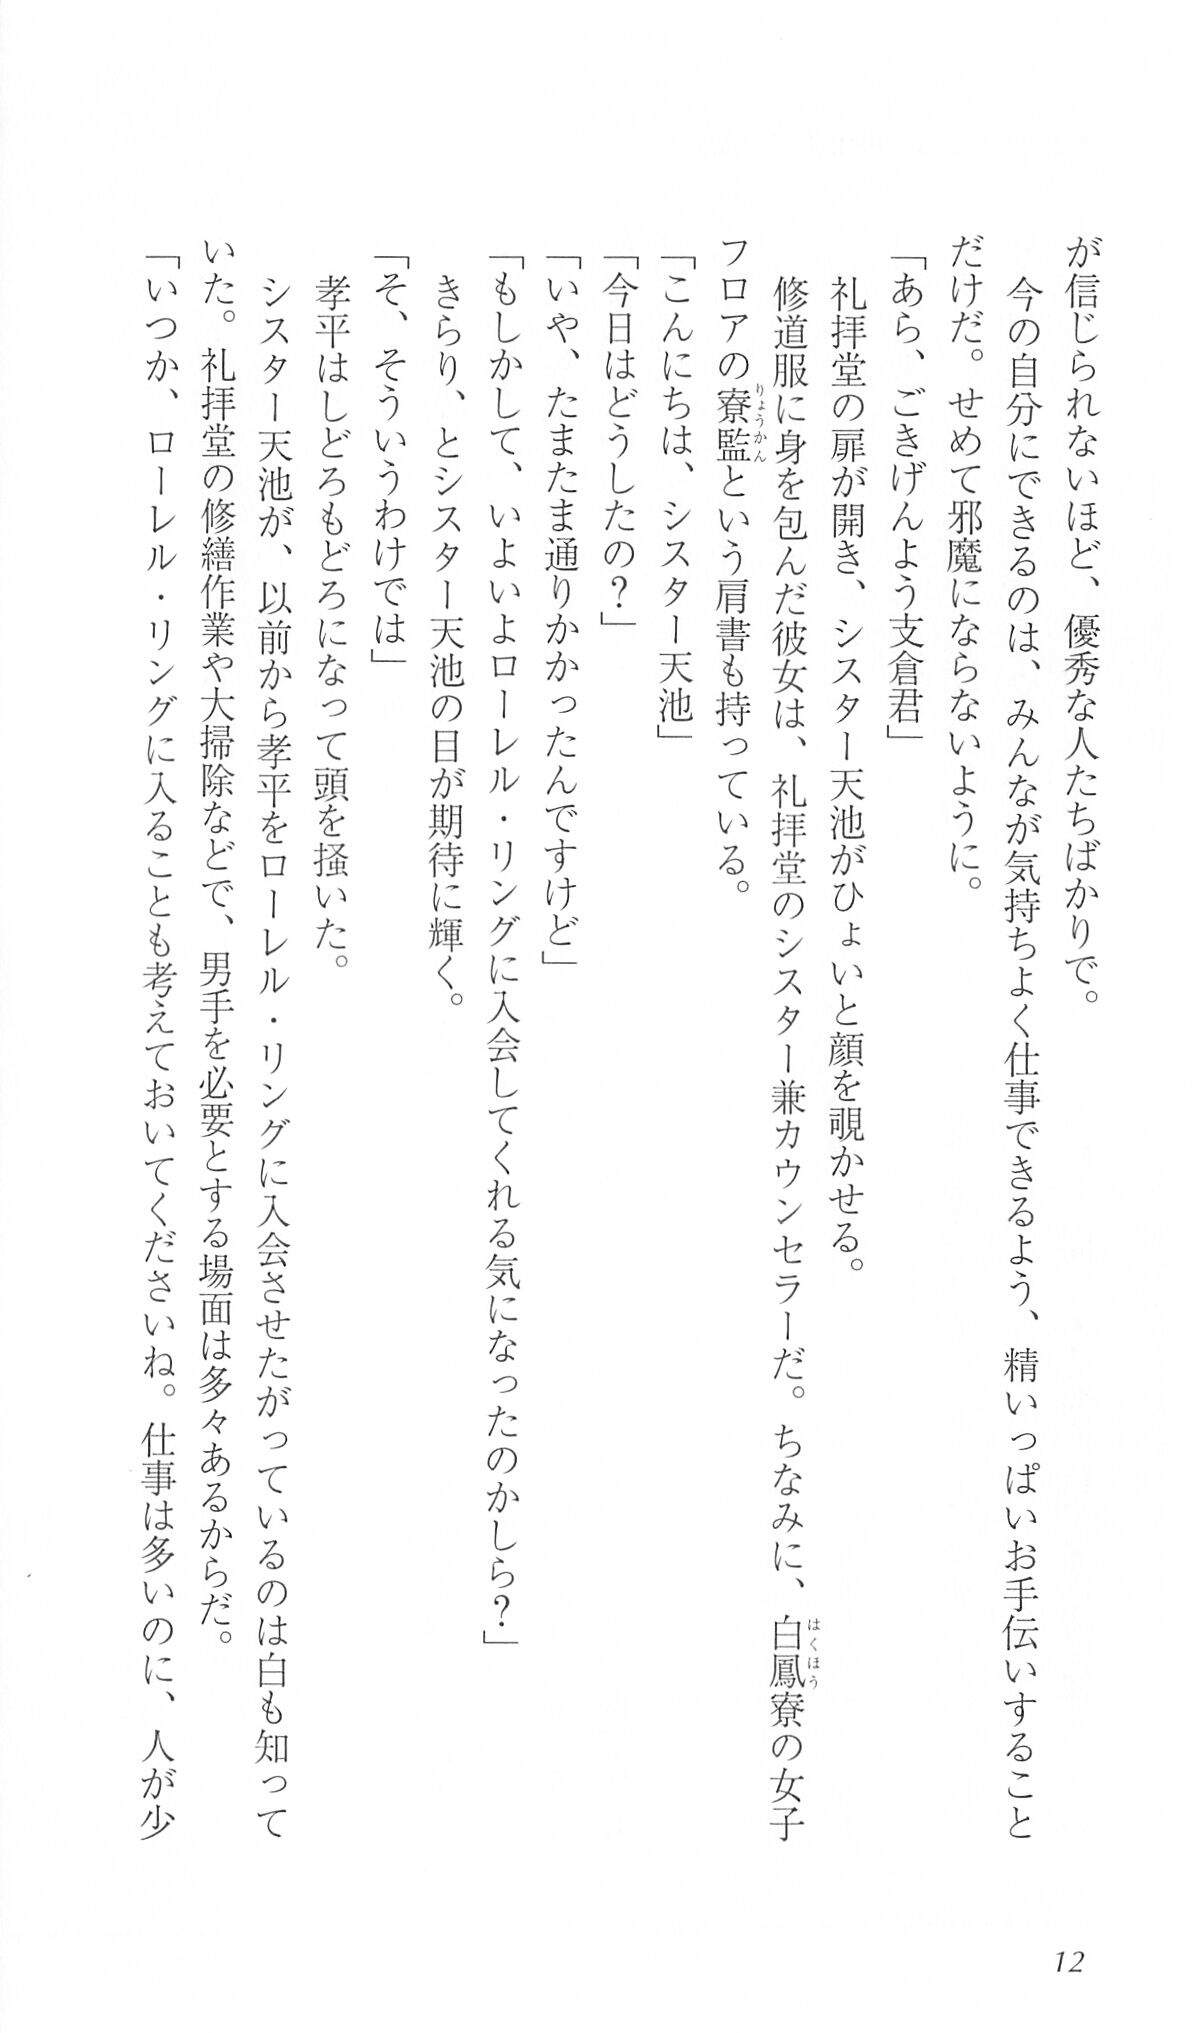 が信じられないほど、優秀な人たちばかりで。
今の自分にできるのは、みんなが気持ちよく仕事できるよう、精いっぱいお手伝いすること
だけだ。せめて邪魔にならないように。
「あら、ごきげんよう支倉君」
礼拝堂の扉が開き、シスター天池がひょいと顔を覗かせる。
修道服に身を包んだ彼女は、礼拝堂のシスター兼カウンセラーだ。ちなみに、白鳳寮の女子
はくほう
フロアの寮監という肩書も持っている。
りょうかん
「こんにちは、シスター天池」
「今日はどうしたの？」
「いや、たまたま通りかかったんですけど」
「もしかして、いよいよローレル・リングに入会してくれる気になったのかしら？」
きらり、とシスター天池の目が期待に輝く。
「そ、そういうわけでは」
孝平はしどろもどろになって頭を掻いた。
シスター天池が、以前から孝平をローレル・リングに入会させたがっているのは白も知って
いた。礼拝堂の修繕作業や大掃除などで、男手を必要とする場面は多々あるからだ。
「いつか、ローレル・リングに入ることも考えておいてくださいね。仕事は多いのに、人が少
12